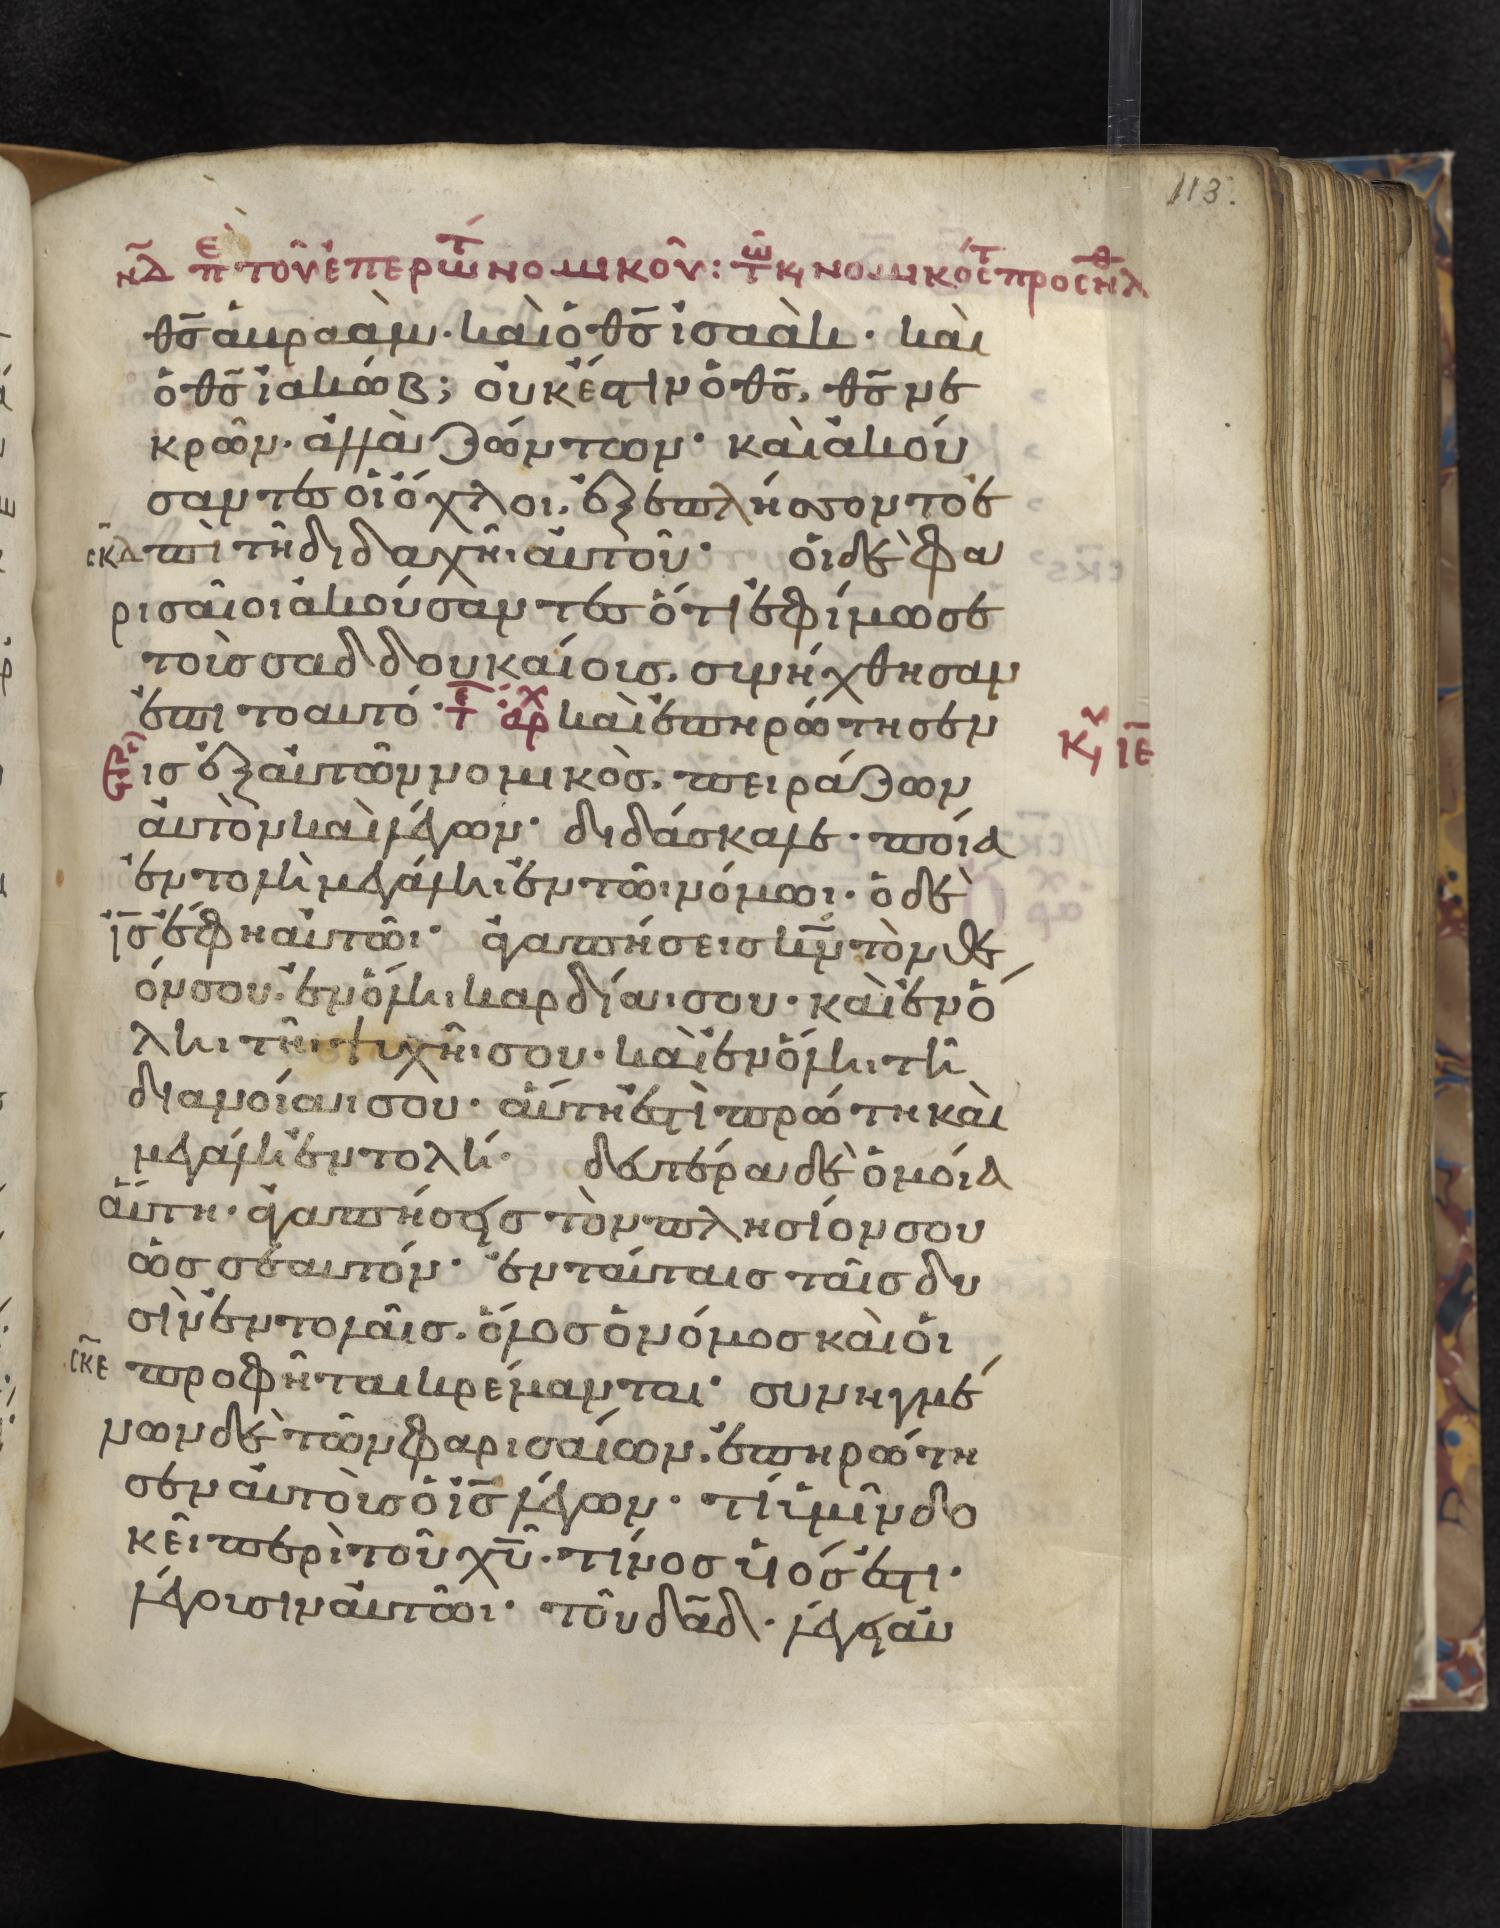 113.
νδ πε τοῦ ἐπερωτ νομικοῦ: τῶ κυ νομικός τ προσῆλθ
θς ἀβραὰμ· καὶ ὁ θς ἰσαὰκ· καὶ
ὁ θς ἰακώβ; οὐκ ἔστιν ὁ θς, θς νε
κρῶν· ἀλλὰ ζώντων· καὶ ἀκού
σαντες οἱ ὄχλοι, ἐξεπλήσσοντο ἐ
σκδ πὶ τῆ διδαχῆι αὐτοῦ· οἱ δὲ φα
ρισαῖοι ἀκούσαντες ὅτι ἐφίμωσε
τοὺς σαδδουκαίοις, συνήχθησαν
ἐπι το αυτό· τε αρχ καὶ ἐπηρώτησεν
εἷσ ἐξ αὐτῶν νομικὸσ, πειράζων
κυ ιε
αὐτὸν καὶ λέγων· διδάσκαλε· ποία
ἐντολὴ μεγάλη ἐν τῶι νόμωι· ὁ δὲ
ἰς ἔφη αὐτῶι· ἀγαπήσεισ κν τὸν θε
όν σου. ἐν ὅλη καρδίαι σου· καὶ ἐν ὅ
λη τῆι ψυχῆι σου· καὶ ἐν ὅλη τῆ
διανοίαι σου· αὕτη ἐστὶ πρώτη καὶ
μεγάλη ἐντολή· δευτέρα δὲ ὁμοία
αὕτη· ἀγαπήσεις τὸν πλησίον σου
ὡσ σεαυτόν· ἐν ταύταισ ταῖσ δυ
σὶν ἐντολαῖσ. ὅλοσ ὁ νόμοσ καὶ οἱ
σκε προφῆται κρέμανται· συνηγμέ
νων δὲ τῶν φαρισαίων. ἐπηρώτη
σεν αὐτοὺσ ὁ ἰς λέγων· τί ὑμῖν δο
κεῖ περὶ τοῦ χῦ· τίνοσ υἱόσ ἐστι·
λέγουσιν αὐτῶι· τοῦ δαδ· λέγει αὐ